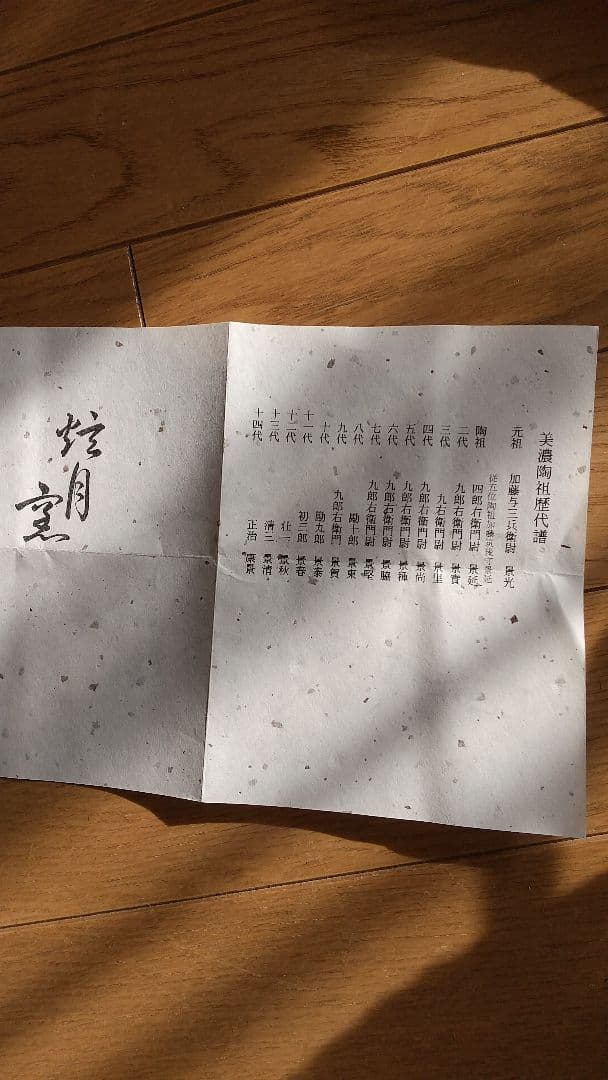 美濃陶祖歴代譜
元祖 加藤与三兵衛尉 景光
陶祖 四郎右衛門尉 景延
従五位陶祖加藤筑後守景延
二代 九郎右衛門尉 景貴
三代 九右衛門尉 景里
四代 九郎右衛門尉 景尚
五代 九郎右衛門尉 景種
六代 九郎右衛門尉 景脇
七代 九郎右衛門尉 景堅
八代 勘十郎 景東
九代 九郎右衛門 景賀
十代 勘九郎 景泰
十一代 初三郎 景春
十二代 壮一 景秋
十三代 清三 景清
十四代 正治 康景
炫月窯